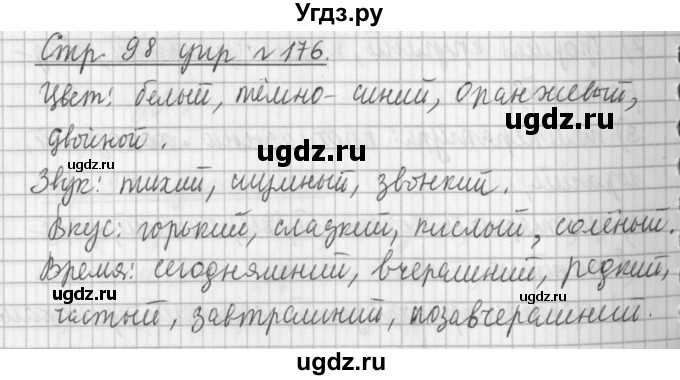 Угдз.ру
Стр 98 упр № 176.
Цвет: белый, тёмно-синий, оранжевый,
двойной.
ugdz.ru ugdz.ru
Звук: тихий, шумный, звонкий.
Вкус: горький, сладкий, кислый, солёный.
ugdz.ru
Время: сегодняшний, вчерашний, редкий,
ugdz.ru ugdz.ru
частый, завтрашний, позавчерашний.
ugdz.ru